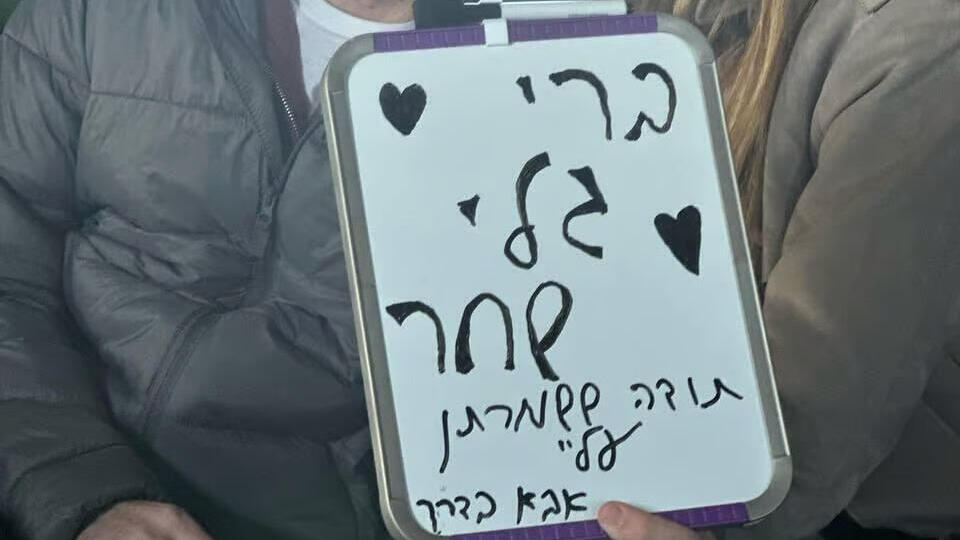 ברי
גלי
שחר
תודה ששמרתן
עליי
אבא בדרך